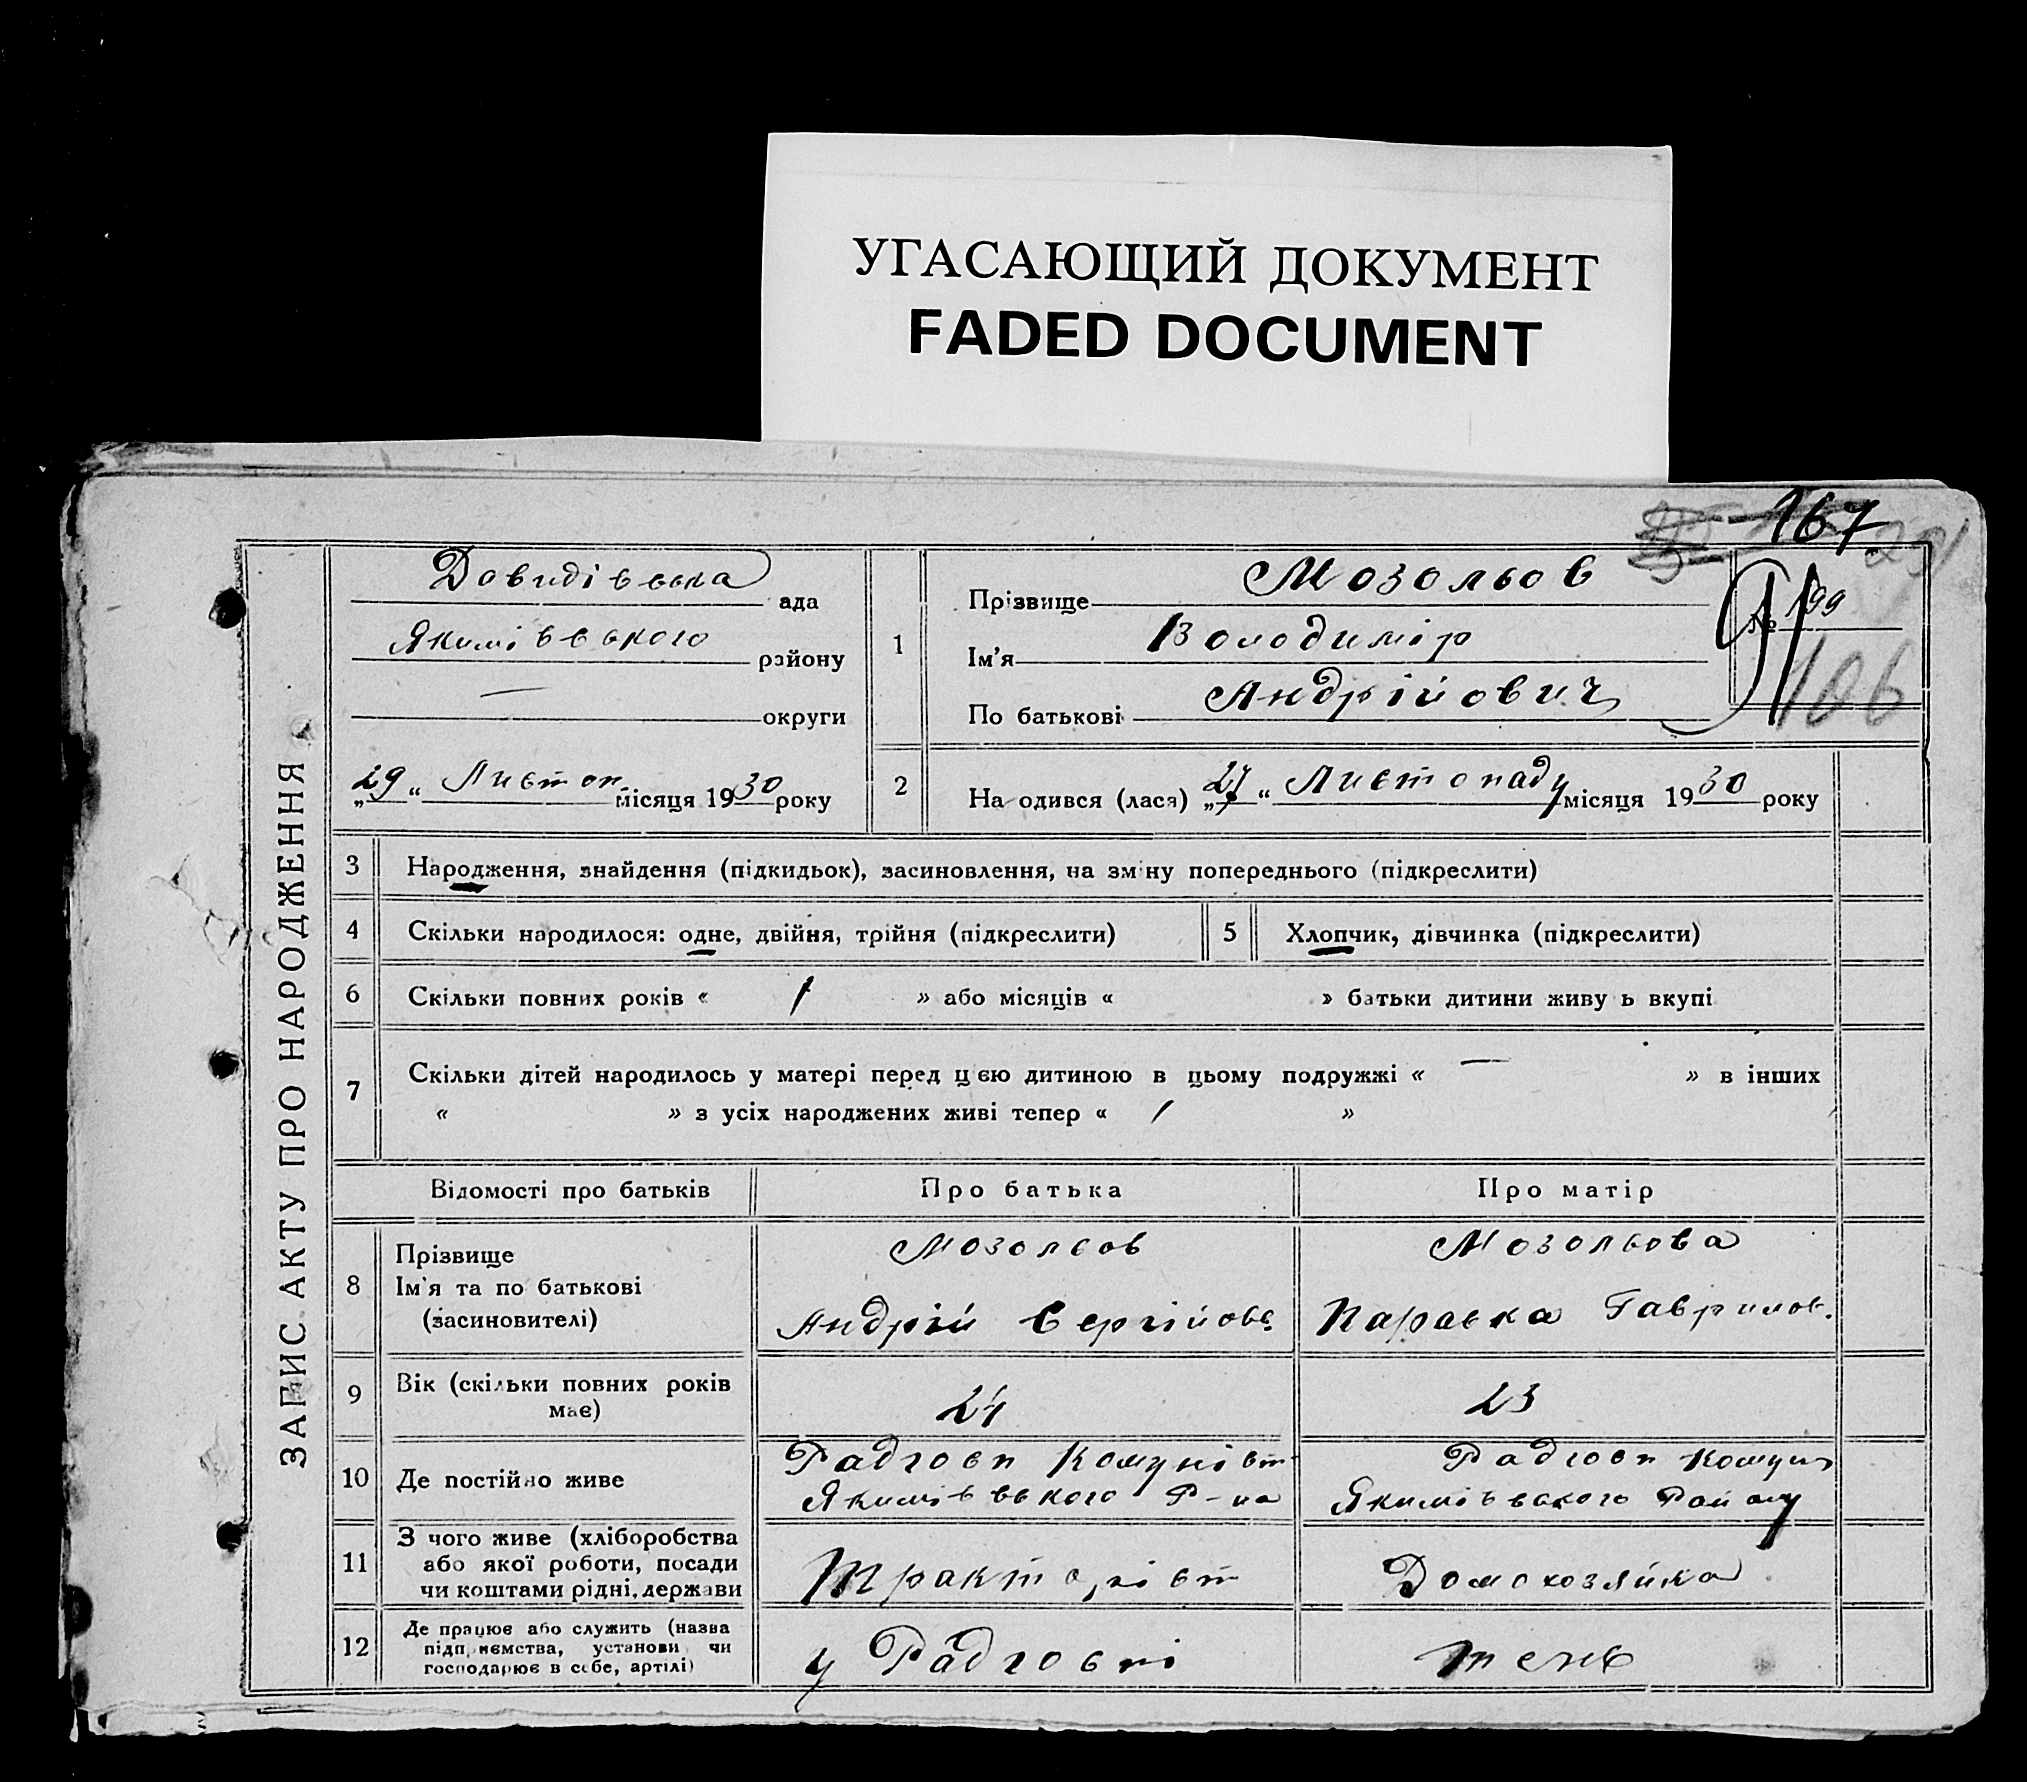 УГАСАЮЩИЙ ДОКУМЕНТ
FADED DOCUMENT
167
231
ЗАПИС АКТУ ПРО НАРОДЖЕННЯ
Довидівська ада
Якимівського району
— округи
„29“ Листоп. місяця 1930 року
1
Прізвище Мозольов
Ім'я Володимір
По батькові Андрійович
№ 199
91
106
2
На одився (лася) „27“ Листопаду місяця 1930 року
3 Народження, знайдення (підкидьок), засиновлення, на зміну попереднього (підкреслити)
4 Скільки народилося: одне, двійня, трійня (підкреслити)
5 Хлопчик, дівчинка (підкреслити)
6 Скільки повних років « 1 » або місяців « » батьки дитини живу ь вкупі
7 Скільки дітей народилось у матері перед цією дитиною в цьому подружжі « — » в інших
« » з усіх народжених живі тепер « 1 »
Відомості про батьків Про батька Про матір
8 Прізвище Мозольов Мозольова
Ім'я та по батькові
(засиновителі) Андрій Сергійов. Параска Гаврилов.
9 Вік (скільки повних років
має) 24 23
10 Де постійно живе Радгосп Комуніст Радгосп Комун
Якимівського Р-на Якимівського Району
11 З чого живе (хліборобства
або якої роботи, посади
чи коштами рідні, держави Тракторіст Домохозяйка
12 Де працює або служить (назва
підприємства, установи чи
господарює в себе, артілі) у Радгоспі тень